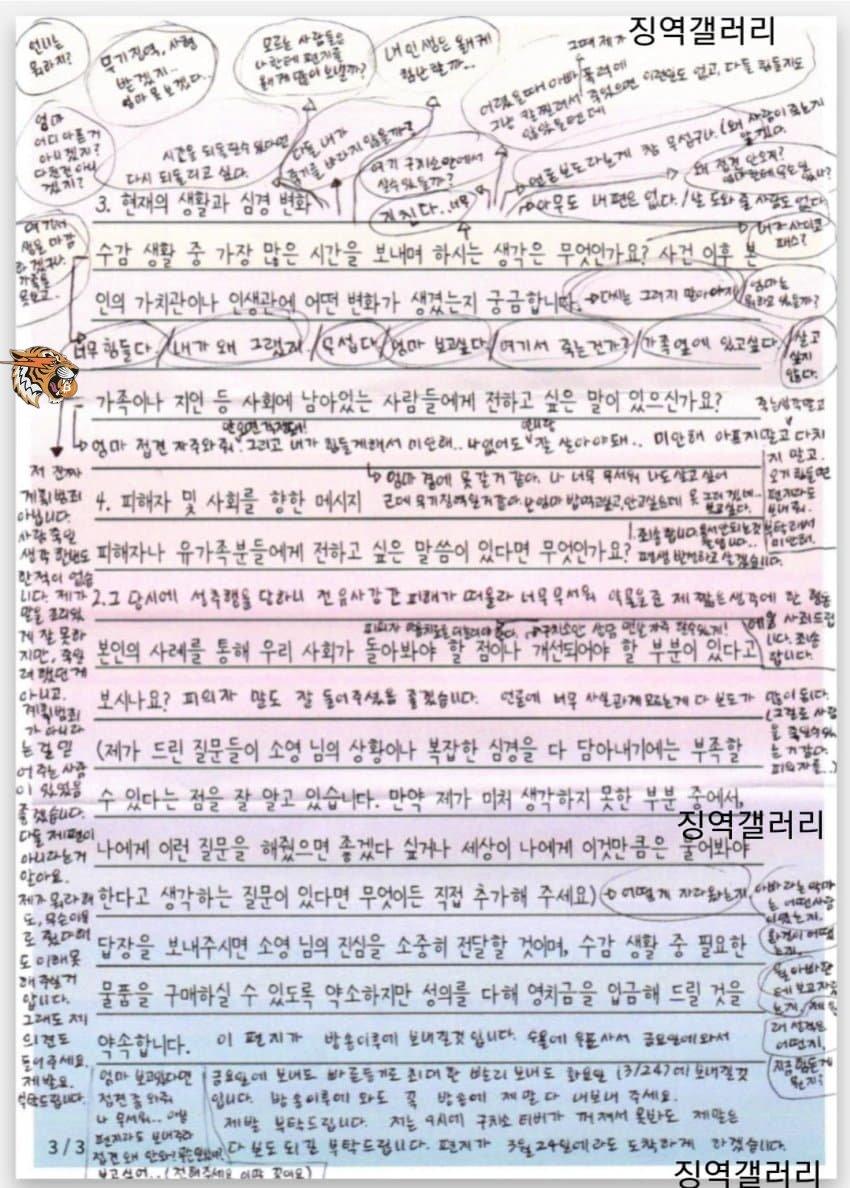 징역갤러리
언니는 뭐라지?
무기징역, 사형 받겠지..
엄마 못보겠다..
모르는 사람들은 나한테 편지를 왜 이렇게 많이 보낼까?
내 인생은 왜 이렇게 험난할까..
그때 제가
어렸을때 아빠 폭력에
그냥 칼 찔려서 죽었으면 이런일도 없고, 다들 힘들지도 않았을텐데
엄마 어디 아픈거 아니겠지?
다친건 아니겠지?
시간을 되돌릴수 있다면
다시 되돌리고 싶다.
다들 내가 죽기를 바라지 않을까?
여기 구치소안에서 살수 있을까?
언론보도라는게 참 무섭구나. (왜 사람이 죽는지 알겠다.
왜 접견 안오지?
엄마한테 무슨일 있나?
3. 현재의 생활과 심경 변화
지친다..너무
아무도 내 편은 없다. / 날 도와줄 사람도 없다.
내가 사이코패스?
여기서 생을 마감하겠구나.
가족을 못보고..
수감 생활 중 가장 많은 시간을 보내며 하시는 생각은 무엇인가요? 사건 이후 본
인의 가치관이나 인생관에 어떤 변화가 생겼는지 궁금합니다.
다시는 그러지 말아야지
엄마는 뭐하고 있을까?
너무 힘들다. / 내가 왜 그랬지. / 무섭다. / 엄마 보고싶다. / 여기서 죽는건가? / 가족옆에 있고싶다. / 살고 싶지 않다.
가족이나 지인 등 사회에 남아있는 사람들에게 전하고 싶은 말이 있으신가요?
안오면 걱정돼!
엄마 접견 자주와줘. 그리고 내가 힘들게해서 미안해.. 나 없어도 잘 살아야돼.. 미안해 아프지말고 다치지 말고.
죽는생각말고
오기 힘들면 편지라도 보내줘.
부탁해서 미안해.
엄마 곁에 못갈거 같아. 나 너무 무서워 나도 살고 싶어
근데 무기징역일거같아. 난 엄마 밥먹고싶고, 안고싶은데 못 그러겠네..
보고싶다.
4. 피해자 및 사회를 향한 메시지
피해자나 유가족분들에게 전하고 싶은 말씀이 있다면 무엇인가요?
1. 죄송합니다. 용서안되는것 압니다..
평생 반성하고 살겠습니다.
2. 그 당시에 성추행을 당하니 전 유사강간 피해가 떠올라 너무 무서워 약물을준 제 짧은생각에 한 행동에 사죄드립니다. 죄송합니다.
본인의 사례를 통해 우리 사회가 돌아봐야 할 점이나 개선되어야 할 부분이 있다고
보시나요? 피의자 말도 잘 들어주셨음 좋겠습니다. 언론에 너무 사실관계 모르는게 다 보도가 많이 됩니다.
(그걸로 사람을 죽일수있는거 같다.
피의자를..)
(제가 드린 질문들이 소영 님의 상황이나 복잡한 심경을 다 담아내기에는 부족할
수 있다는 점을 잘 알고 있습니다. 만약 제가 미처 생각하지 못한 부분 중에서,
징역갤러리
나에게 이런 질문을 해줬으면 좋겠다 싶거나 세상이 나에게 이것만큼은 물어봐야
한다고 생각하는 질문이 있다면 무엇이든 직접 추가해 주세요)
어떻게 자라왔는지,
아빠라는 악마는 어떤사람이었는지.
답장을 보내주시면 소영 님의 진심을 소중히 전달할 것이며, 수감 생활 중 필요한
물품을 구매하실 수 있도록 약소하지만 성의를 다해 영치금을 입금해 드릴 것을
약속합니다. 이 편지가 방송이후에 보내질것 입니다. 수욜에 우표사서 금요일에 와서
지금 힘든게 뭔지?
저 진짜 계획범죄 아닙니다.
사람 죽일 생각 한번도 한적이 없습니다. 제가 말을 조리있게 잘 못하지만, 죽일려 했던게 아니고.
계획범죄가 아니라는걸 믿어주는 사람이 있었음 좋겠습니다.
다들 제편이 아니라는거 알아요.
제가 뭐라해도, 무슨이유로 줬다해도 이해못해주실거 압니다.
그래도 저의 의견도 들어주세요.
제발요. 부탁드립니다.
엄마 보고있다면 접견 좀 와줘
나 무서워..
편지라도 보내주라
접견 왜 안와?
보고싶어.. (전해주세요
금요일에 보내도 빠른등기로 최대한 빨리 보내도 화요일 (3/24)에 보내질것
입니다. 방송이후에 와도 꼭 방송에 제 말 다 내보내 주세요.
제발 부탁드립니다. 저는 9시에 구치소 티비가 꺼져서 못봐도 제말은
다 보도 되길 부탁드립니다. 편지가 3월24일에라도 도착하게 하겠습니다.
3 / 3
징역갤러리